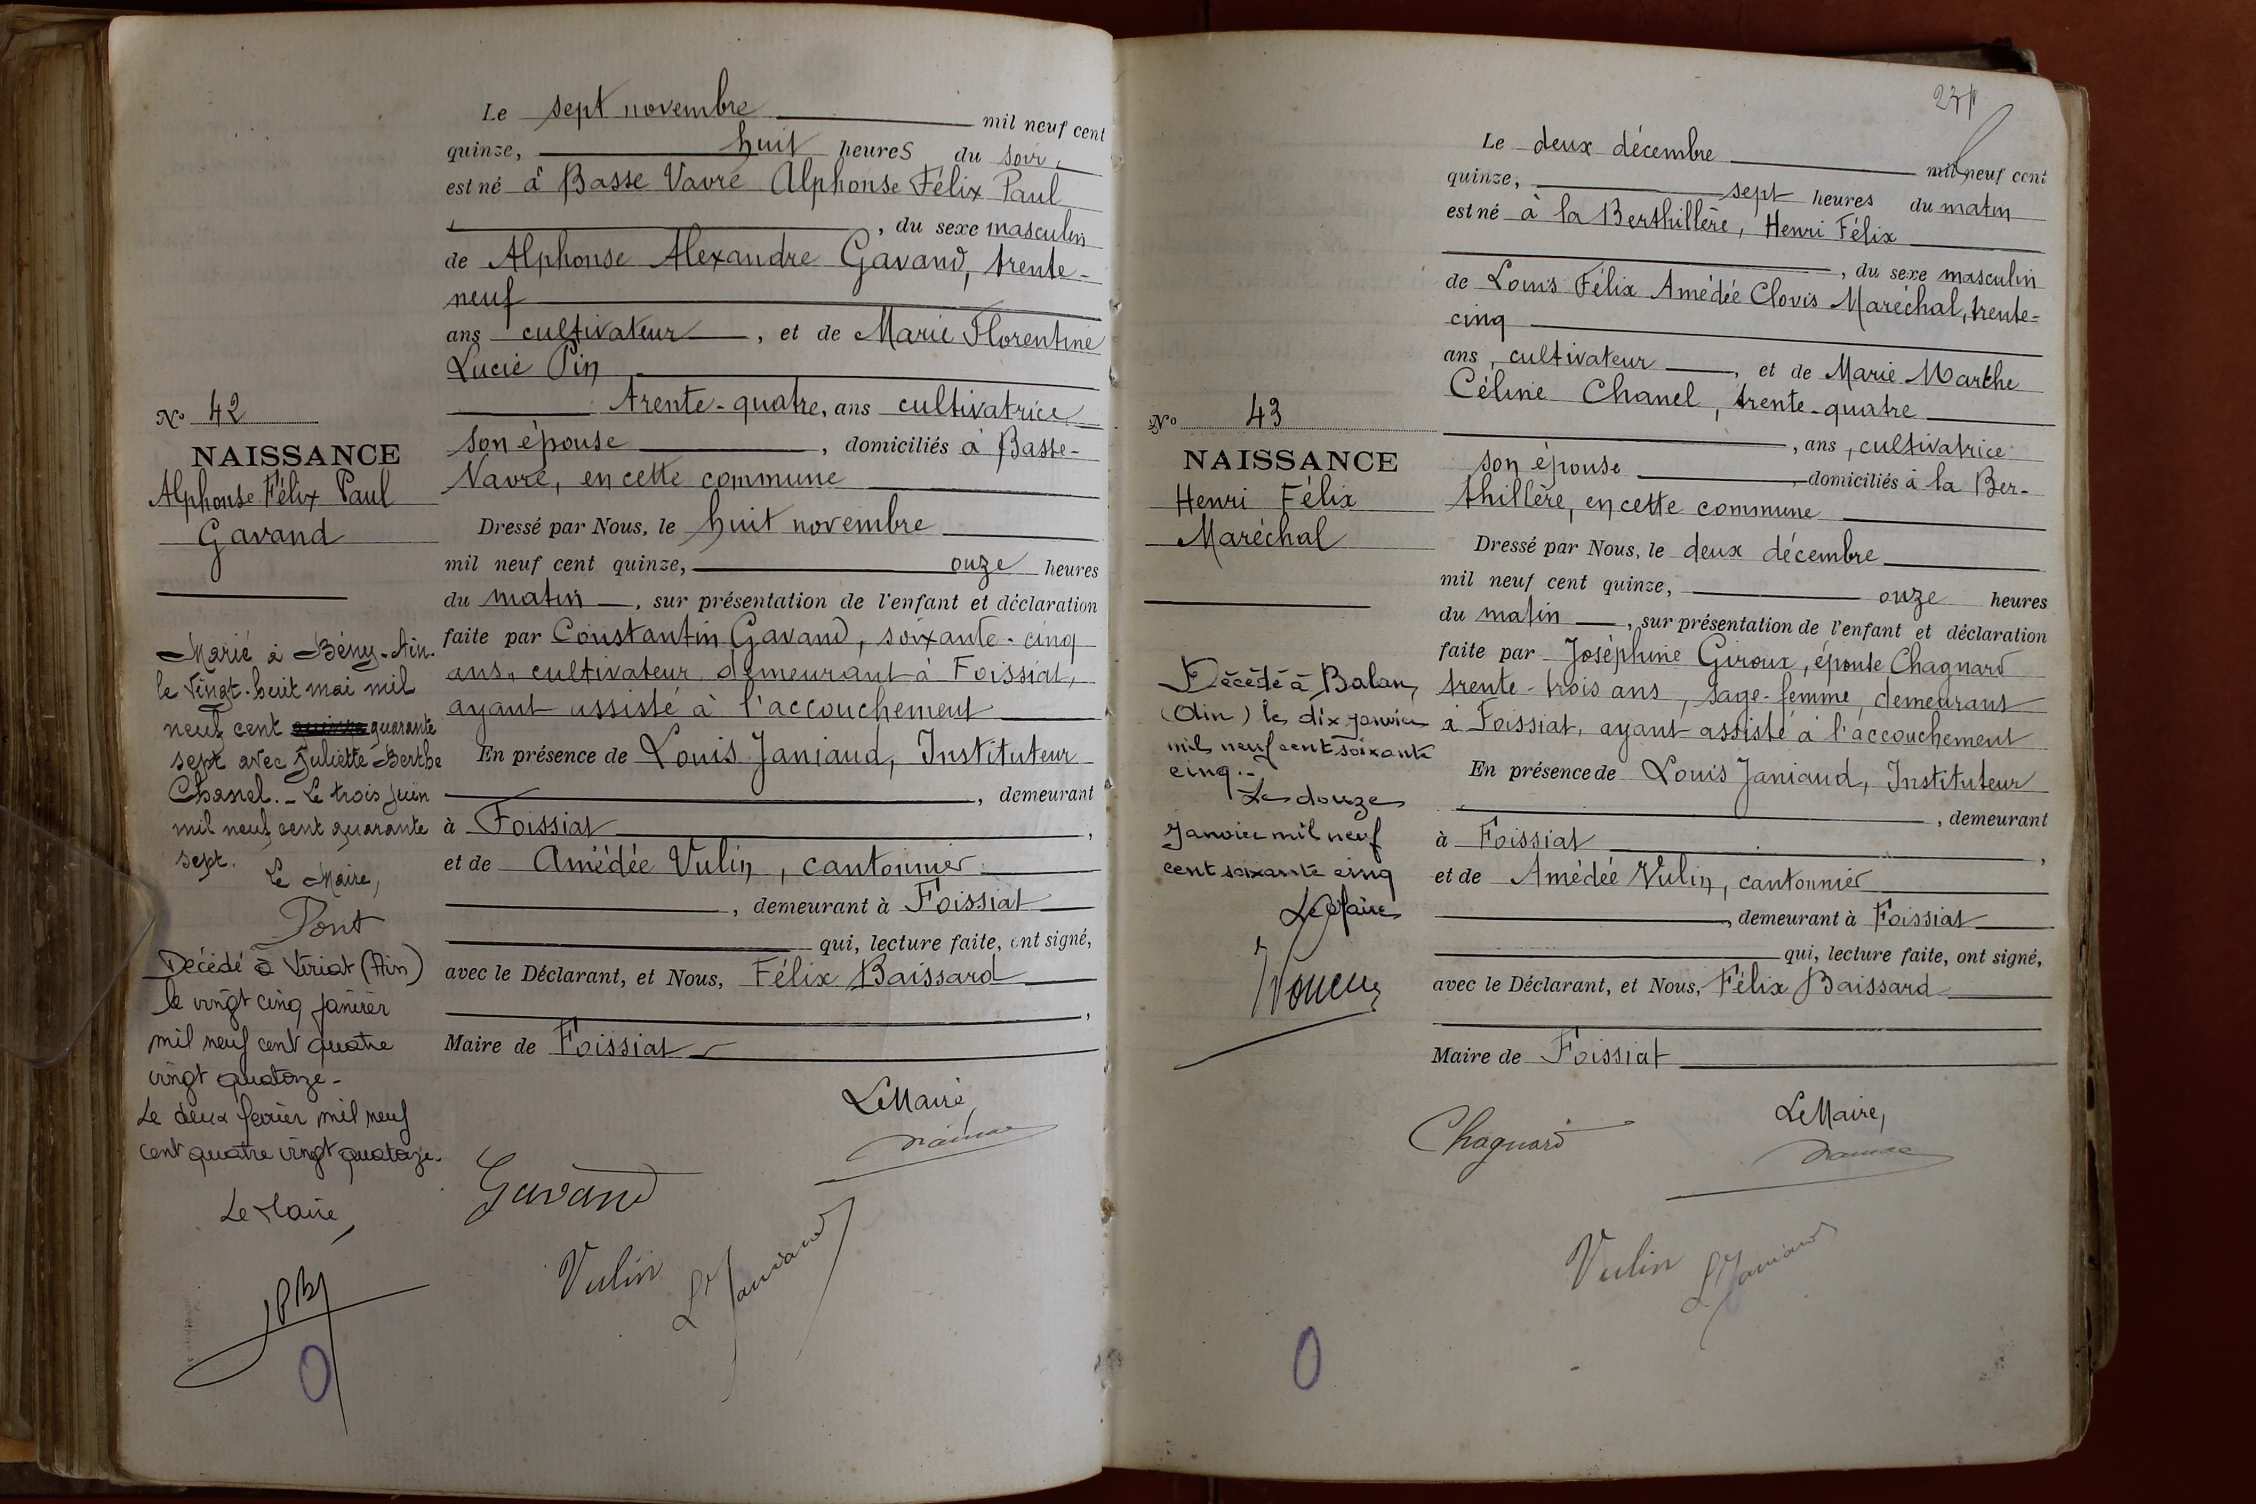 Le sept novembre mil neuf cent
quinze, huit heures du soir,
est né à Basse Vavre Alphonse Félix Paul
, du sexe masculin
de Alphonse Alexandre Gavand, trente-
neuf
ans cultivateur, et de Marie Florentine
Lucie Pin
trente-quatre, ans cultivatrice
son épouse, domiciliés à Basse-
Vavre, en cette commune
Dressé par Nous, le huit novembre
mil neuf cent quinze, onze heures
du matin, sur présentation de l'enfant et déclaration
faite par Constantin Gavand, soixante-cinq
ans, cultivateur demeurant à Foissiat,
ayant assisté à l'accouchement
En présence de Louis Janiaud, Instituteur
, demeurant
à Foissiat,
et de Amédée Vulin, cantonnier
, demeurant à Foissiat
qui, lecture faite, ont signé,
avec le Déclarant, et Nous, Félix Baissard
,
Maire de Foissiat
Le Maire,
Gavand
Vulin
L Janiaud
No 42
NAISSANCE
Alphonse Félix Paul
Gavand
Marié à Bény-Ain.
le vingt-huit mai mil
neuf cent quarante
sept avec Juliette Berthe
Chanel._ Le trois juin
mil neuf cent quarante
sept.
Le Maire,
Pont
Décédé à Viriat (Ain)
le vingt cinq janvier
mil neuf cent quatre
vingt quatorze-
Le deux février mil neuf
cent quatre vingt quatorze.
Le Maire,
Le deux décembre mil neuf cent
quinze, sept heures du matin
est né à la Berthillère, Henri Félix
, du sexe masculin
de Louis Félix Amédée Clovis Maréchal, trente-
cinq
ans, cultivateur, et de Marie Marthe
Céline Chanel, trente-quatre
, ans, cultivatrice
son épouse, domiciliés à la Ber-
thillère, en cette commune
Dressé par Nous, le deux décembre
mil neuf cent quinze, onze heures
du matin, sur présentation de l'enfant et déclaration
faite par Joséphine Giroux, épouse Chagnard
trente-trois ans, sage-femme, demeurant
à Foissiat, ayant assisté à l'accouchement
En présence de Louis Janiaud, Instituteur
, demeurant
à Foissiat,
et de Amédée Vulin, cantonnier
, demeurant à Foissiat
qui, lecture faite, ont signé,
avec le Déclarant, et Nous, Félix Baissard
Maire de Foissiat
Le Maire,
Chagnard
Vulin
L Janiaud
No 43
NAISSANCE
Henri Félix
Maréchal
Décédé à Balan,
(Ain) le dix janvier
mil neuf cent soixante
cinq.-
Le douze
Janvier mil neuf
cent soixante cinq
Le Maire